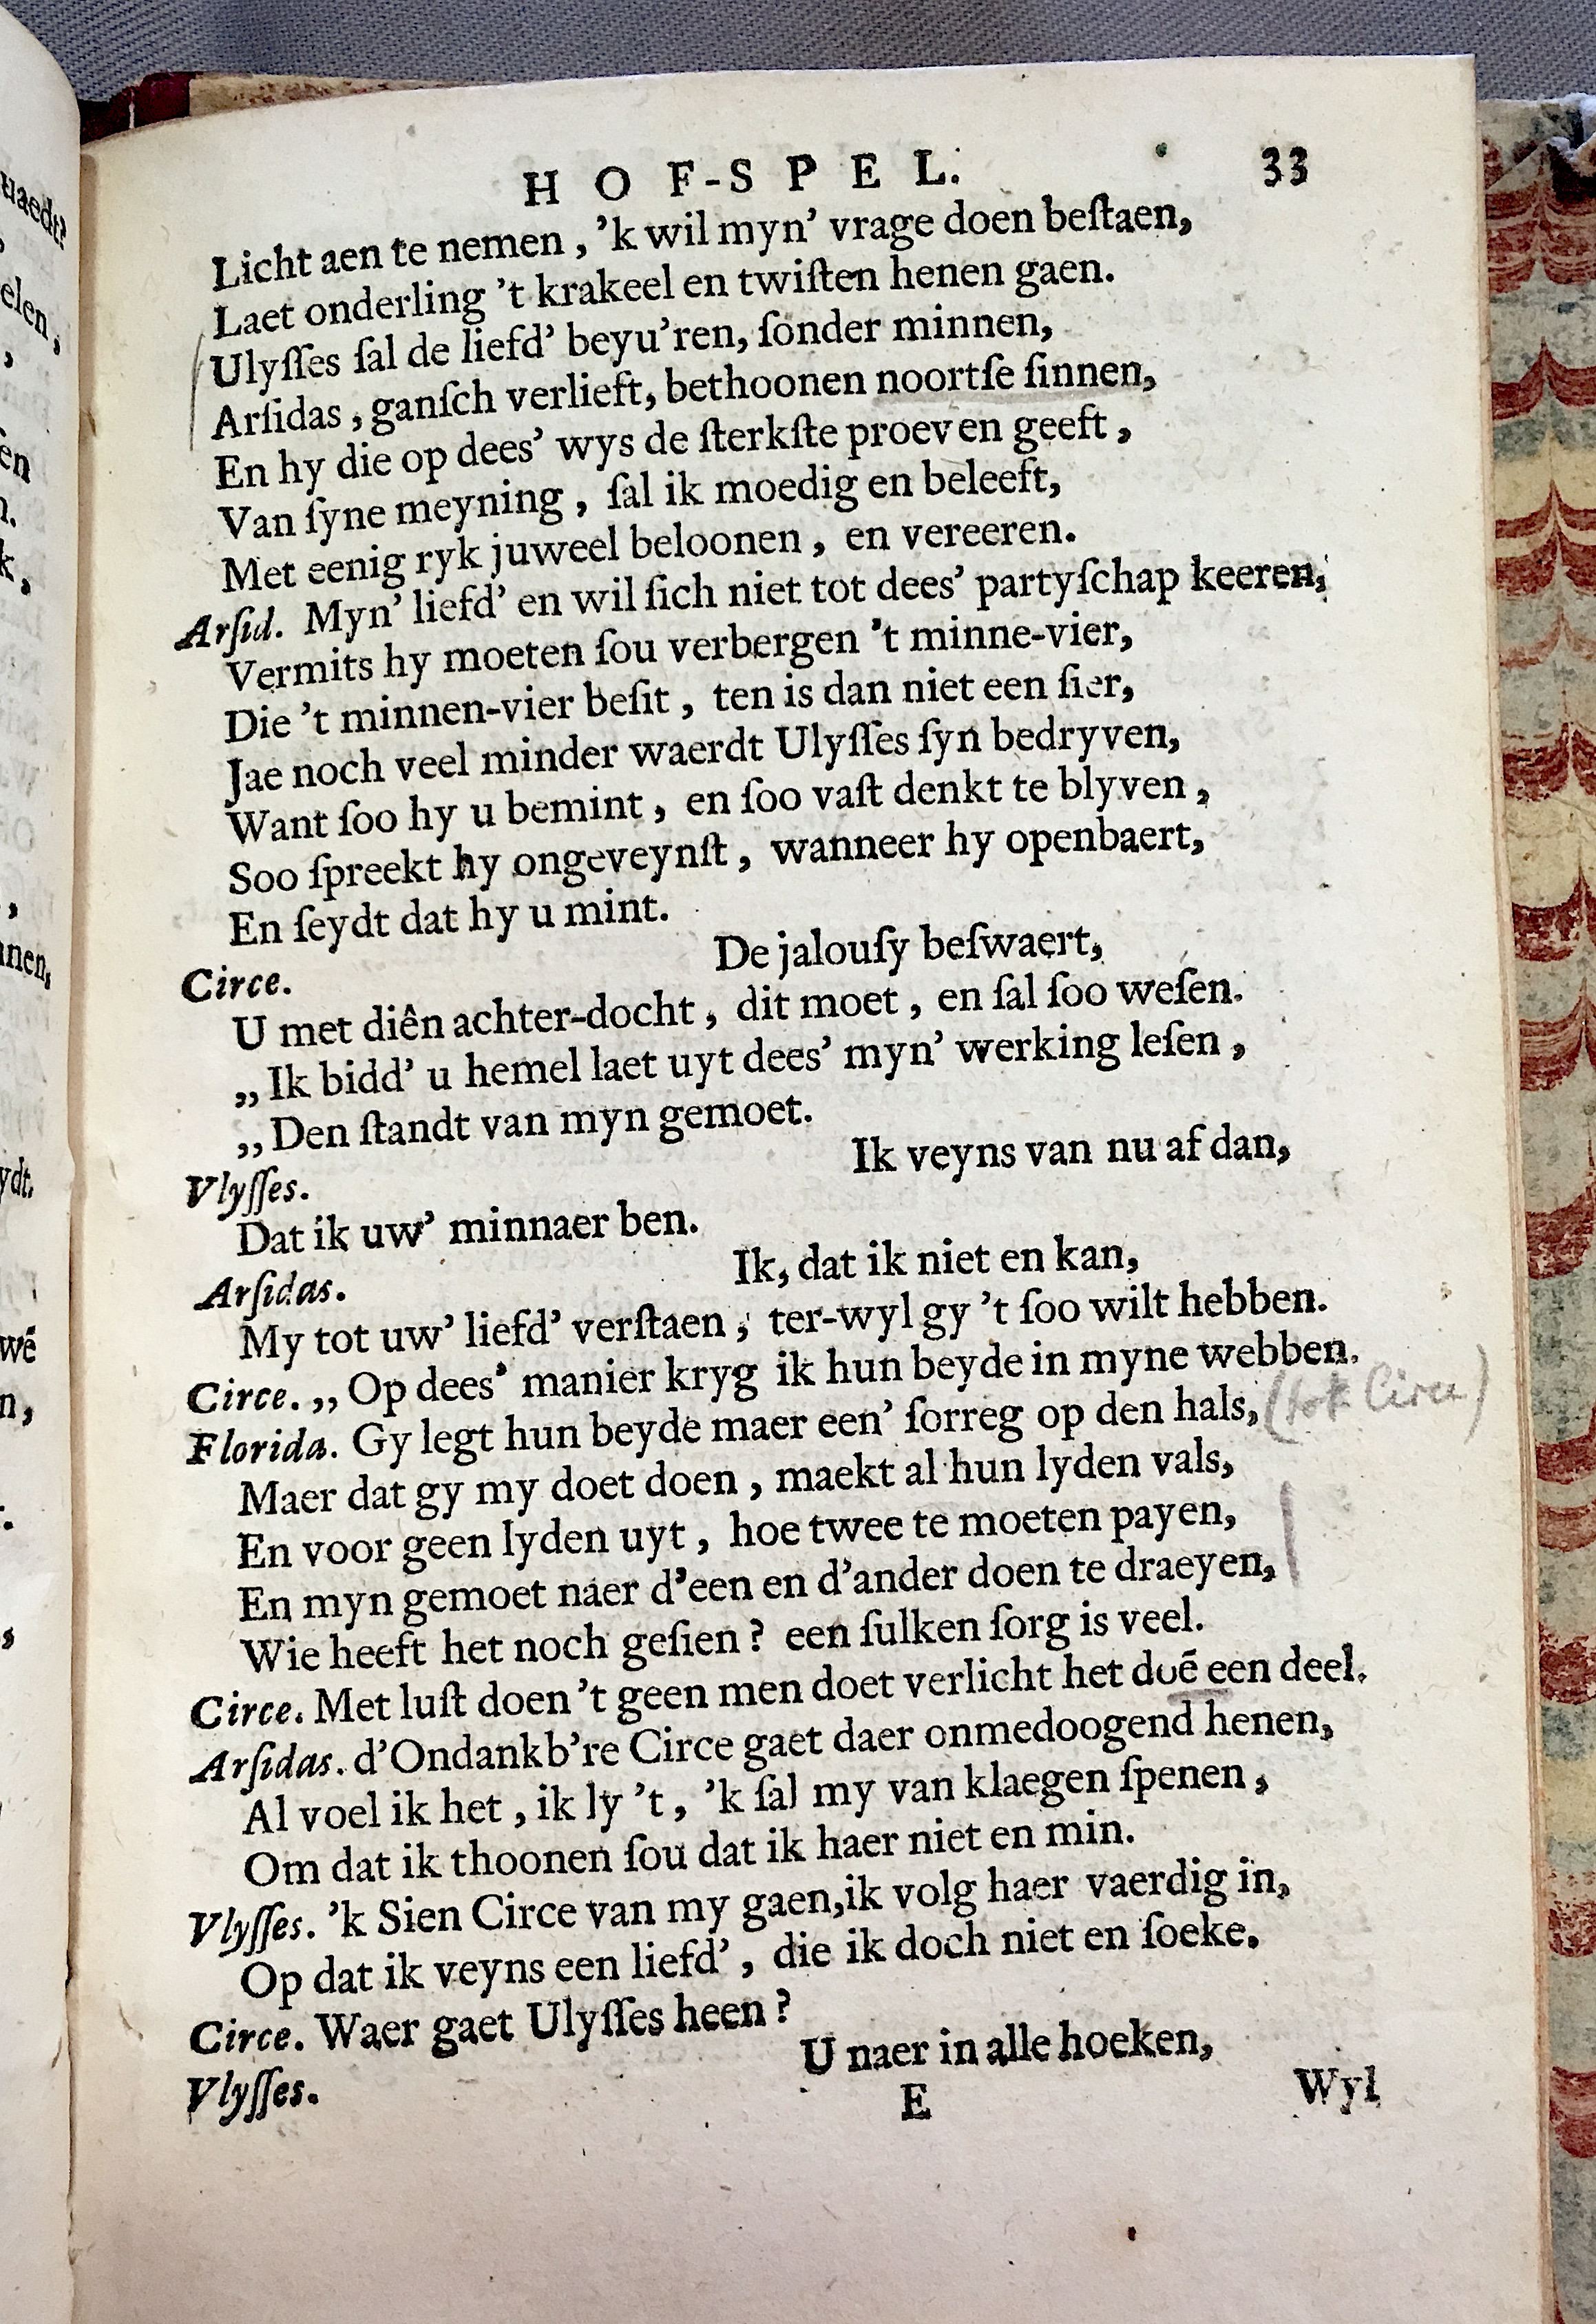 HOF-SPEL. 33
Licht aen te nemen, 'k wil myn' vrage doen beſtaen,
Laet onderling 't krakeel en twiſten henen gaen.
Ulyſſes ſal de liefd' beyu'ren, ſonder minnen,
Arſidas, ganſch verlieft, bethoonen noortſe ſinnen,
En hy die op dees' wys de ſterkſte proeven geeft,
Van ſyne meyning, ſal ik moedig en beleeft,
Met eenig ryk juweel beloonen, en vereeren.
Arſid. Myn' liefd' en wil ſich niet tot dees' partyſchap keeren,
Vermits hy moeten ſou verbergen 't minne-vier,
Die 't minnen-vier beſit, ten is dan niet een ſier,
Jae noch veel minder waerdt Ulyſſes ſyn bedryven,
Want ſoo hy u bemint, en ſoo vaſt denkt te blyven,
Soo ſpreekt hy ongeveynſt, wanneer hy openbaert,
En ſeydt dat hy u mint.
Circe. De jalouſy beſwaert,
U met diên achter-docht, dit moet, en ſal ſoo weſen.
„Ik bidd' u hemel laet uyt dees' myn' werking leſen,
„Den ſtandt van myn gemoet.
Vlyſſes. Ik veyns van nu af dan,
Dat ik uw' minnaer ben.
Arſidas. Ik, dat ik niet en kan,
My tot uw' liefd' verſtaen, ter-wyl gy 't ſoo wilt hebben.
Circe. „Op dees' manier kryg ik hun beyde in myne webben.
Florida. Gy legt hun beyde maer een' ſorreg op den hals, (tot Circe)
Maer dat gy my doet doen, maekt al hun lyden vals,
En voor geen lyden uyt, hoe twee te moeten payen,
En myn gemoet naer d'een en d'ander doen te draeyen,
Wie heeft het noch geſien? een ſulken ſorg is veel.
Circe. Met luſt doen 't geen men doet verlicht het doē een deel.
Arſidas. d'Ondankb're Circe gaet daer onmedoogend henen,
Al voel ik het, ik ly 't, 'k ſal my van klaegen ſpenen,
Om dat ik thoonen ſou dat ik haer niet en min.
Vlyſſes. 'k Sien Circe van my gaen, ik volg haer vaerdig in,
Op dat ik veyns een liefd', die ik doch niet en ſoeke.
Circe. Waer gaet Ulyſſes heen?
Vlyſſes. U naer in alle hoeken,
E Wyl